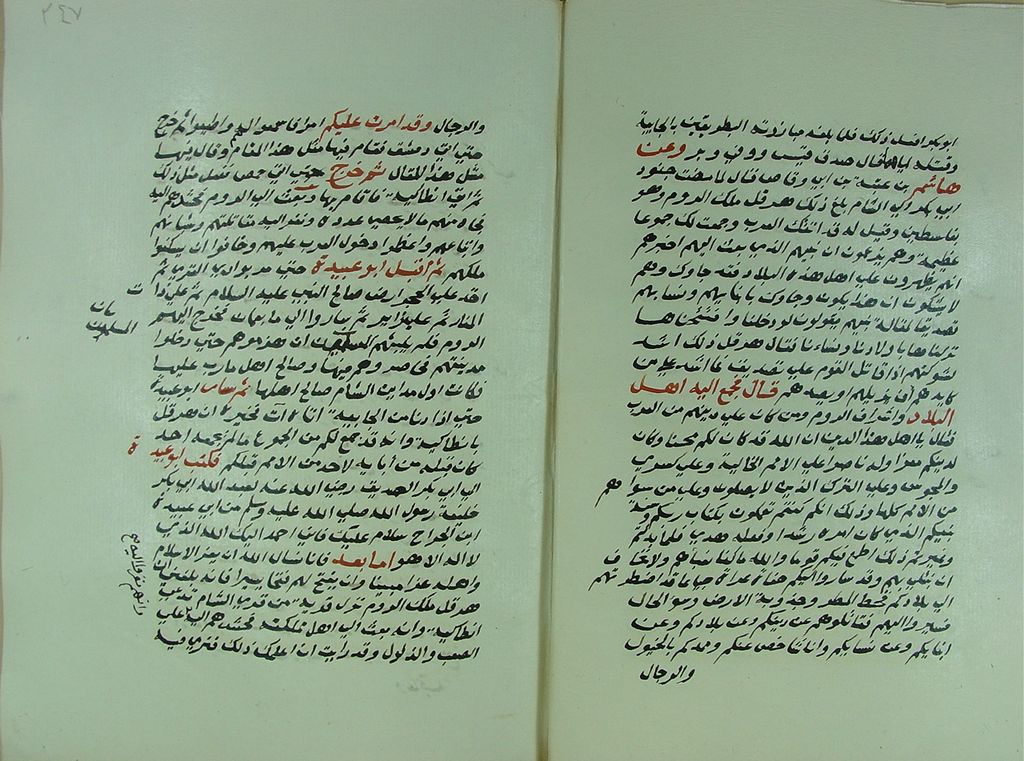 ابو بكر افضل ذلك فلما بلغه مبارزته البطريق بالجابية
وقتله اياه قال صدق قيس ووفى وبر وعن
هاشم بن عتبة بن ابي وقاص قال لما مضت جنود
ابي بكر الى الشام بلغ ذلك هرقل ملك الروم وهو
بفلسطين وقيل له قد اتتك العرب وجمعت لك جموعا
عظيمة وهم يزعمون ان نبيهم الذي بعث اليهم اخبرهم
انهم يظهرون على اهل هذه البلاد وقد جاوك وهم
لا يشكون ان هذا يكون وجاوك بابنايهم ونسايهم
تصديقا لمقالة نبيهم يقولون لو دخلنا وافتتحناها
نزلناها باولادنا ونساءنا فقال هرقل ذلك اشد
لشوكتهم اذا قاتل القوم على تصديق فما اشد على من
كابدهم ان يزيلهم او يصدهم قال فجمع اليه اهل
البلاد واشراف الروم ومن كان على دينهم من العرب
فقال يا اهل هذا الدين ان الله قد كان لكم محسنا وكان
لدينكم معزا وله ناصرا على الامم الخالية وعلى كسرى
والمجوس وعلى الترك الذين لا يعلمون وعلى من سواهم
من الامم كلها وذلك انكم كنتم تعملون بكتاب ربكم وسنة
نبيكم الذي كان امره رشدا وفعله هدى فلما بدلتم
وغيرتم ذلك اطمع فيكم قوما والله ما كنا نعبأ بهم ولا نخاف
ان نبتلى بهم وقد ساروا اليكم حفاة عراة جياعا قد اضطرهم
الى بلادكم قحط المطر وجدوبة الارض وسوء الحال
فسيروا اليهم فقاتلوهم عن دينكم وعن بلادكم وعن
ابنايكم وعن نسايكم وانا شاخص عنكم وممدكم بالخيول
والرجال
والرجال وقد امرت عليكم امراء فاسمعوا لهم واطيعوا ثم خرج
حتى اتى دمشق فقام فيها مثل هذا المقام وقال فيها
مثل هذا المقال ثم خرج حتى اتى حمص ففعل مثل ذلك
ثم اتى انطاكية فاقام بها وبعث الى الروم فحشدهم اليه
فجاءه منهم ما لا يحصى عدده ونفر اليه مقاتلتهم وشبانهم
واتباعهم واعظموا دخول العرب عليهم وخافوا ان يسلبوا
ملكهم ثم اقبل ابو عبيدة حتى مر بوادي القرى ثم
اخذ على الحجر ارض صالح النبي عليه السلام ثم على ذات
المنار ثم على زيزا ثم ساروا الى مآب بعمان فخرج اليهم
الروم فلم يلبثهم المسلمون ان هزموهم حتى دخلوا
مدينتهم فحاصروهم فيها وصالح اهل مآب عليها
فكانت اول مداين الشام صالح اهلها ثم سار ابو عبيدة
حتى اذا دنا من الجابية اتاه ات فخبره ان هرقل
بانطاكية وانه قد جمع لكم من الجموع ما لم يجمعه احد
كان قبله من ابايه لاحد من الامم قبلكم فكتب ابو عبيدة
الى ابي بكر الصديق رضي الله عنه لعبد الله ابي بكر
خليفة رسول الله صلى الله عليه وسلم من ابي عبيدة
ابن الجراح سلام عليك فاني احمد اليك الله الذي
لا اله الا هو اما بعد فانا نسال الله ان يعز الاسلام
واهله عزا مبينا وان يفتح لهم فتحا يسيرا فانه بلغني ان
هرقل ملك الروم نزل قرية من قرى الشام تدعى
انطاكية وانه بعث الى اهل مملكته فحشدهم اليه على
الصعب والذلول وقد رايت ان اعلمك ذلك فترى فيه
مآب
المسلمون
وانهم نفروا اليه
٢٤٧